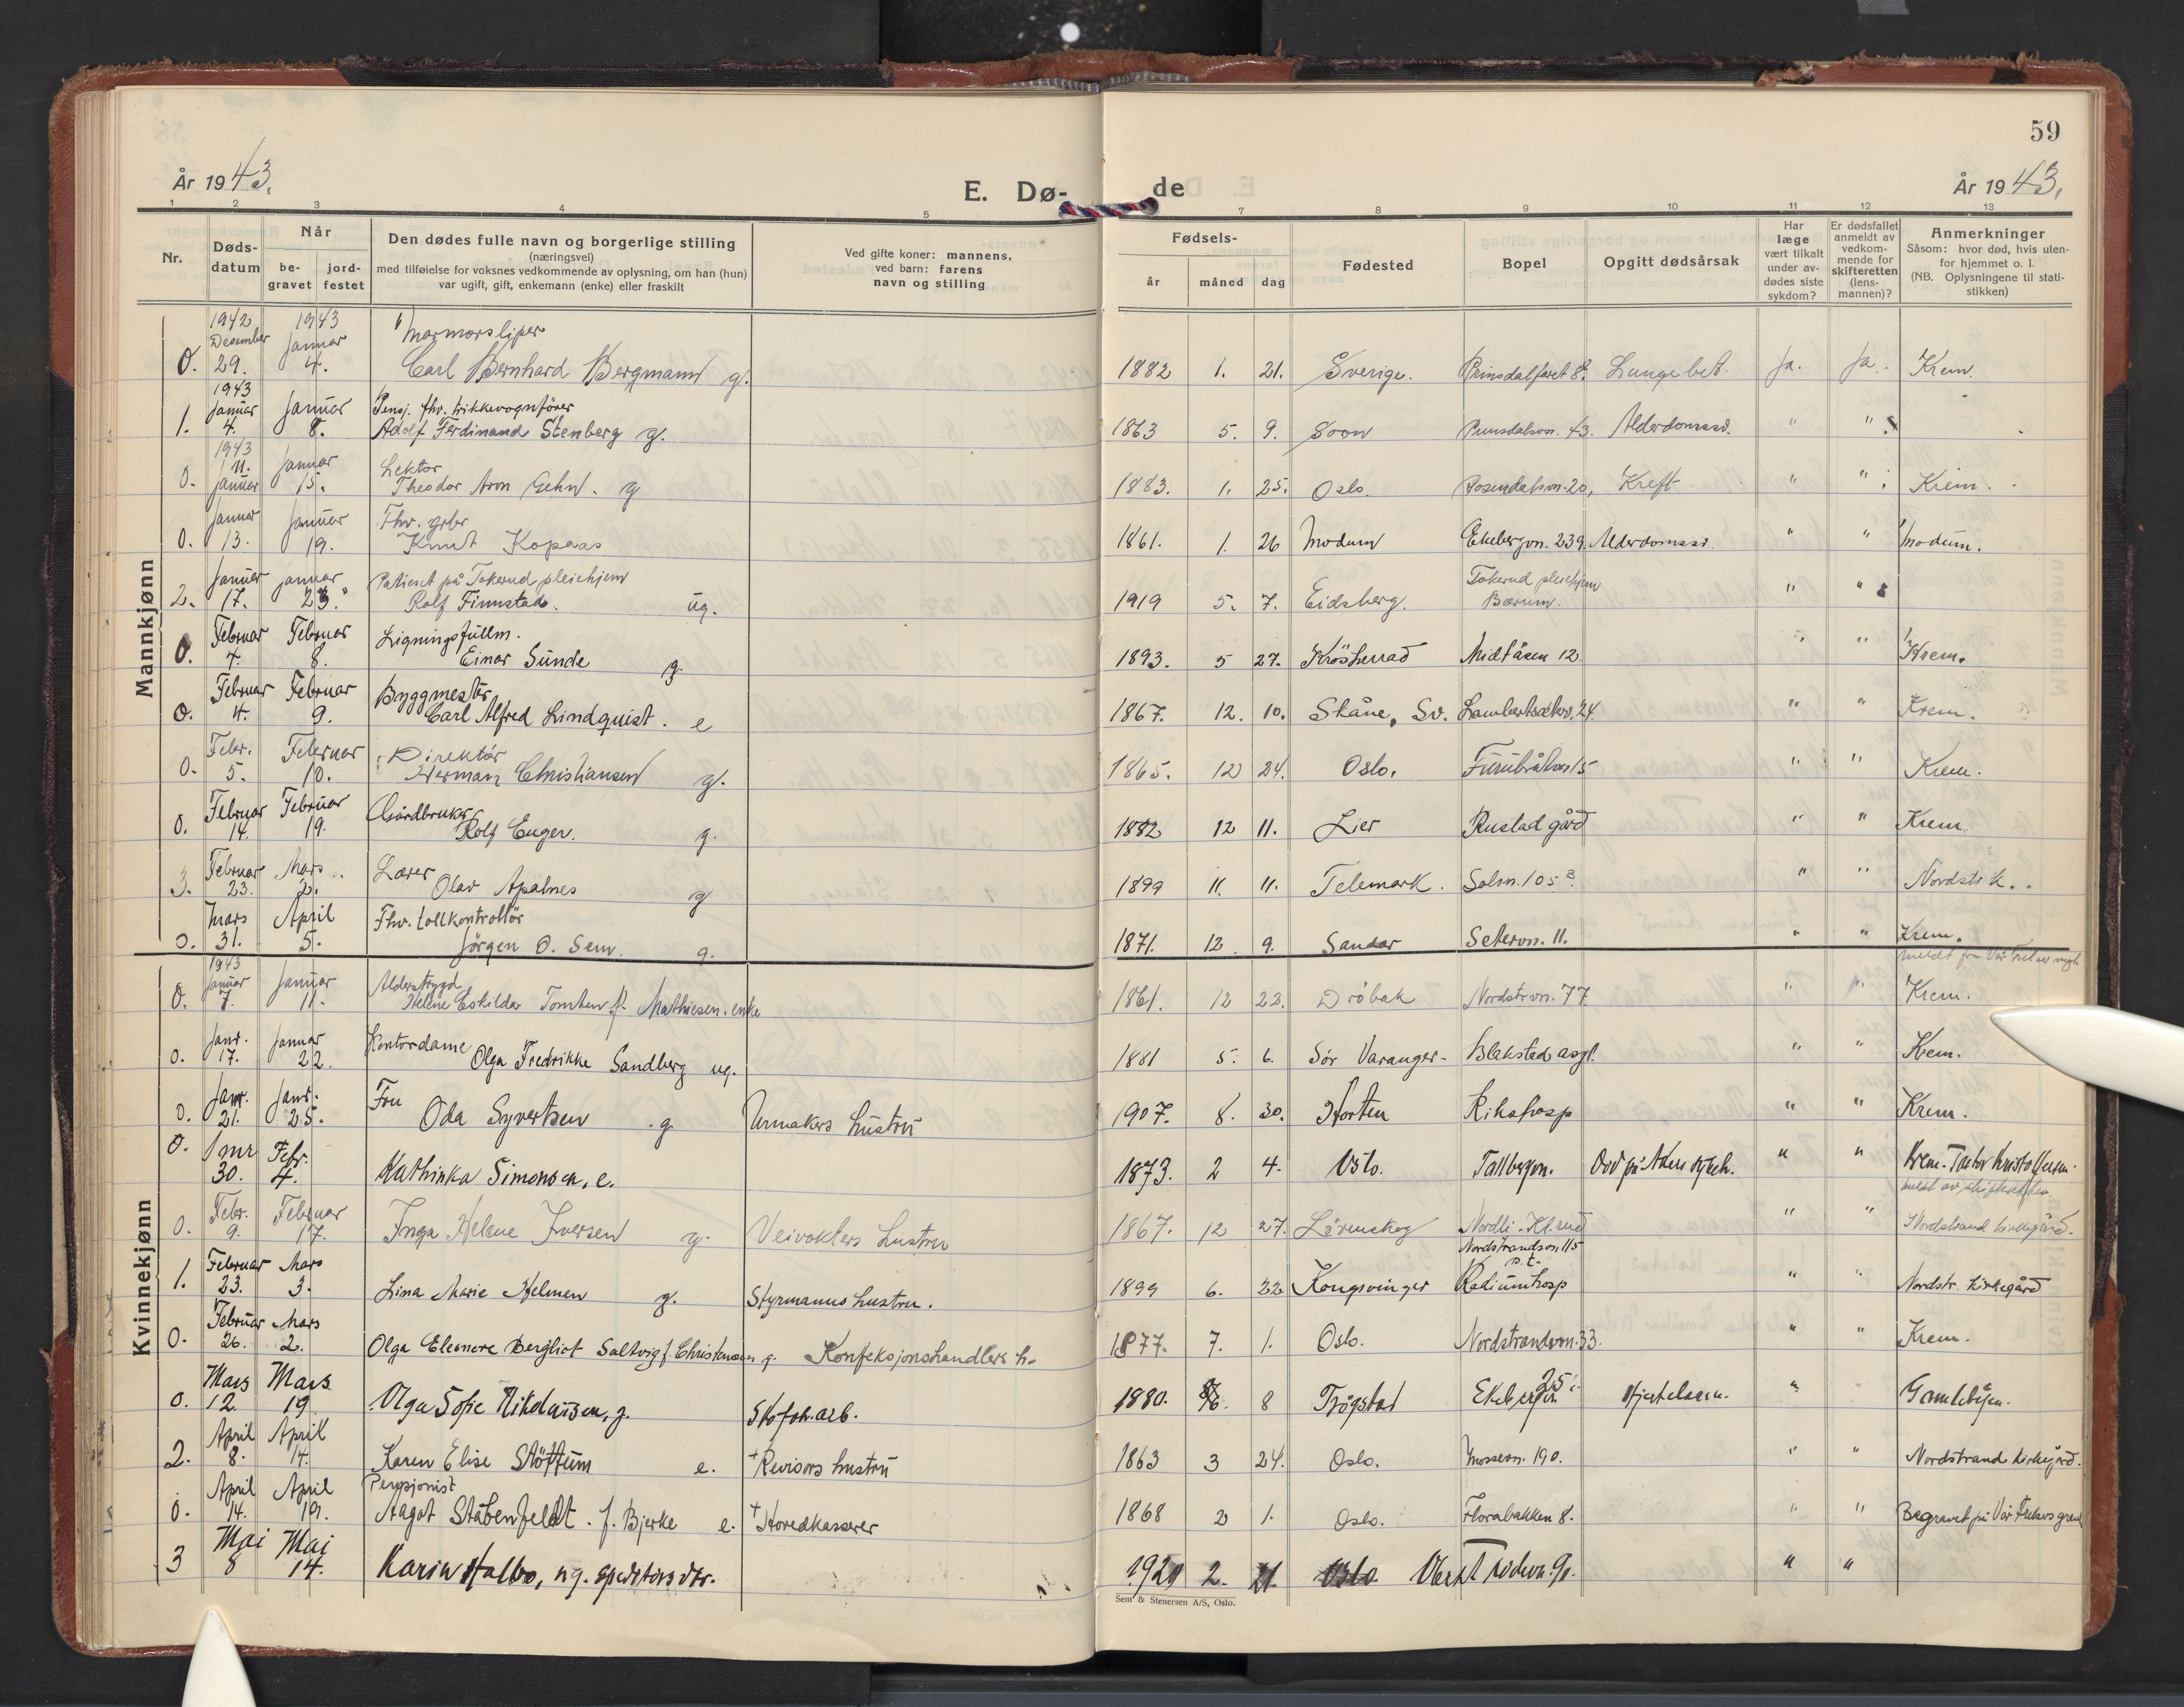 59
År 1943. E. Dø- de År 1943.
1 2 3 4 5 7 8 9 10 11 12 13
Nr. Døds-datum Når be-gravet jord-festet Den dødes fulle navn og borgerlige stilling (næringsvei) med tilføielse for voksnes vedkommende av oplysning, om han (hun) var ugift, gift, enkemann (enke) eller fraskilt Ved gifte koner: mannens, ved barn: farens navn og stilling Fødsels- år måned dag Fødested Bopel Opgitt dødsårsak Har læge vært tilkalt under av-dødes siste sykdom? Er dødsfallet anmeldt av vedkom-mende for skifteretten (lens-mannen)? Anmerkninger Såsom: hvor død, hvis uten-for hjemmet o. l. (NB. Oplysningene til stati-stikken)
Mannkjønn
0. 1942 Desember 29. 1943 Januar 4. Marmorsliper Carl Bernhard Bergmann g. 1882 1. 21. Sverige. Prinsdalfaret 8. Lungebet. Ja. Ja. Krem.
1. 1943 Januar 4. Januar 8. Pensj. fhv. trikkevognfører Adolf Ferdinand Stenberg g. 1863 5. 9. Soon Prinsdalsvn. 43. Alderdomssv. " "
0. 1943 11. Januar Januar 15. Lektor Theodor Aron Gehn. g 1883. 1. 25. Oslo. Rosendalsvn. 20, Kreft " " Krem.
0. Januar 13. Januar 19. Fhv. grbr Knut Kopaas 1861. 1. 26 Modum Ekebergvn. 239. Alderdomssv. " " Modum.
2. Januar 17. Januar 23. Patient på Tokerud pleiehjem Rolf Finnstad. ug. 1919 5. 7. Eidsberg. Tokerud pleiehjem Bærum. " "
0. Februar 4. Februar 8. Ligningsfullm. Einar Sunde g. 1893. 5 27. Krösherad Midtåsen 12 " " Krem.
0. Februar 4. Februar 9. Byggmester Carl Alfred Lindquist. e 1867. 12. 10. Skåne, Sv. Lambertseterv. 24. " " Krem.
0. Febr. 5. Februar 10. Direktör Herman Christiansen g. 1865. 12 24. Oslo. Furubråtvn 15 " " Krem.
0. Februar 14. Februar 19. Gårdbruker Rolf Enger. g. 1882 12 11. Lier Rustad gård " " Krem
3. Februar 23. Mars 2. Lærer Olav Apalnes g 1899 11. 11. Telemark. Solvn. 105 B. " " Nordstr. k.
0. Mars 31. April 5. Fhv. tollkontrollör Jörgen O. Sem. g. 1871. 12 9. Sandar Setervn. 11. " " Krem.
Kvinnekjønn
0. 1943 Januar 7. Januar 11. Alderstrygd Helene Eskilda Tomten f. Mathiesen. enke 1861. 12 22. Dröbak Nordstrvn. 77 " " Krem.
0. Janr. 17. Januar 22. Kontordame Olga Fredrikke Sandberg ug. 1881 5. 6. Sör Varanger- Blakstad asyl. " " Krem.
0. Janr. 21. Janr. 25. Fru Oda Syvertsen g. Urmakers hustru 1907. 8. 30. Horten Rikshosp " " Krem.
0. Janr 30. Febr. 4. Kathinka Simonsen, e. 1873. 2 4. Oslo. Tallbergvn. Död på Akers sykeh. " " Krem. Pastor Kristoffersen. meldt av skifteretten
0. Febr. 9. Februar 17. Inga Helene Iversen g. Veivokters hustru 1867. 12 27. Lörenskog Nordli - Kl.rud " " Nordstrand kirkegård.
1. Februar 23. Mars 3. Lina Marie Helmen g. Styrmanns hustru. 1899 6. 22 Kongsvinger Nordstrandsvn 115 p.t. Radiumhosp " " Nordstr. kirkegård
0. Februar 26. Mars 2. Olga Eleonore Bergliot Saltvig f. Christensen g. Konfeksjonshandlers h. 1877. 7. 1. Oslo. Nordstrandsvn. 33. " " Krem.
0. Mars 12. Mars 19 Olga Sofie Nikolaisen, g. Skofabr.arb. 1880. 8 Trøgstad Ekebergvn 25 Hjertelam. " Gamlebyen.
2. April 8. April 14. Karen Elise Støttum e. + Revisors hustru 1863 3 24. Oslo. Mossevn. 190. " " Nordstrand kirkegård.
0. April 14. April 19. Pensjonist Aagot Stabenfeldt. f. Bjerke e. + Hovedkasserer 1868 2 1. Oslo. Florabakken 8. " " Begravet på Vår Frelsers gravl
3 Mai 8 Mai 14. Karin Halbo, ug. speditörs dtr. 1920 2. 21. Oslo. " "
Sem & Stenersen A/S, Oslo.